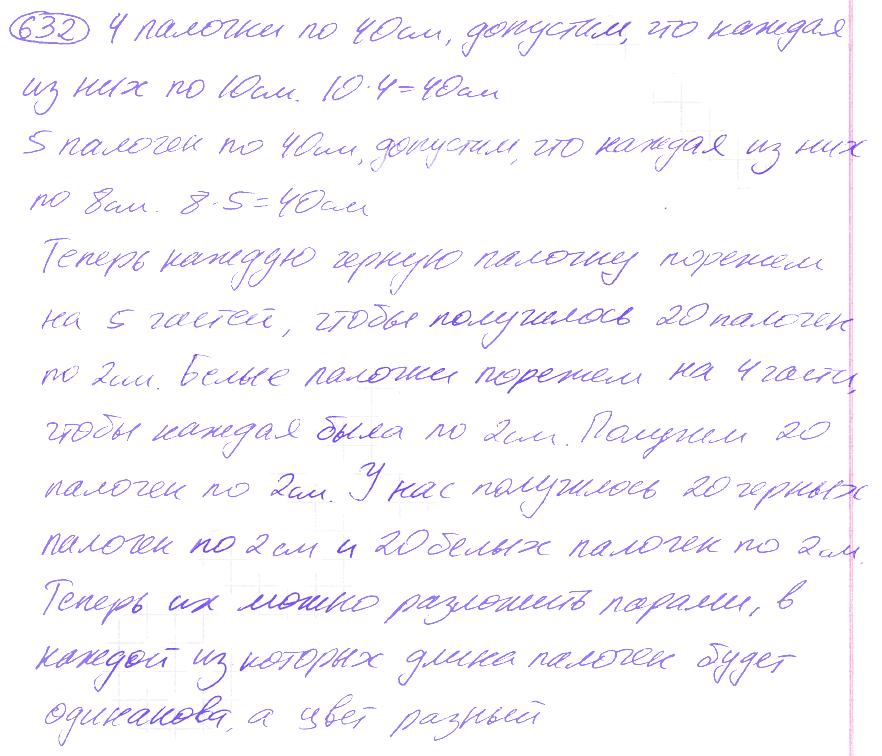 632 4 палочки по 40см, допустим, что каждая
из них по 10см. 10·4=40см
5 палочек по 40см, допустим, что каждая из них
по 8см. 8·5=40см
Теперь каждую черную палочку порежем
на 5 частей, чтобы получилось 20 палочек
по 2см. Белые палочки порежем на 4 части,
чтобы каждая была по 2см. Получим 20
палочек по 2см. У нас получилось 20 черных
палочек по 2см и 20 белых палочек по 2см.
Теперь их можно разложить парами, в
каждой из которых длина палочек будет
одинакова, а цвет разный